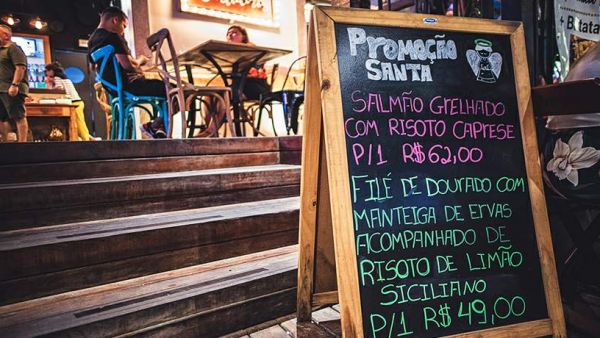 Promoção
SANTA
SALMÃO GRELHADO
COM RISOTO CAPRESE
P/1 R$62,00
FILÉ DE DOURADO COM
MANTEIGA DE ERVAS
ACOMPANHADO DE
RISOTO DE LIMÃO
SICILIANO
P/1 R$49,00